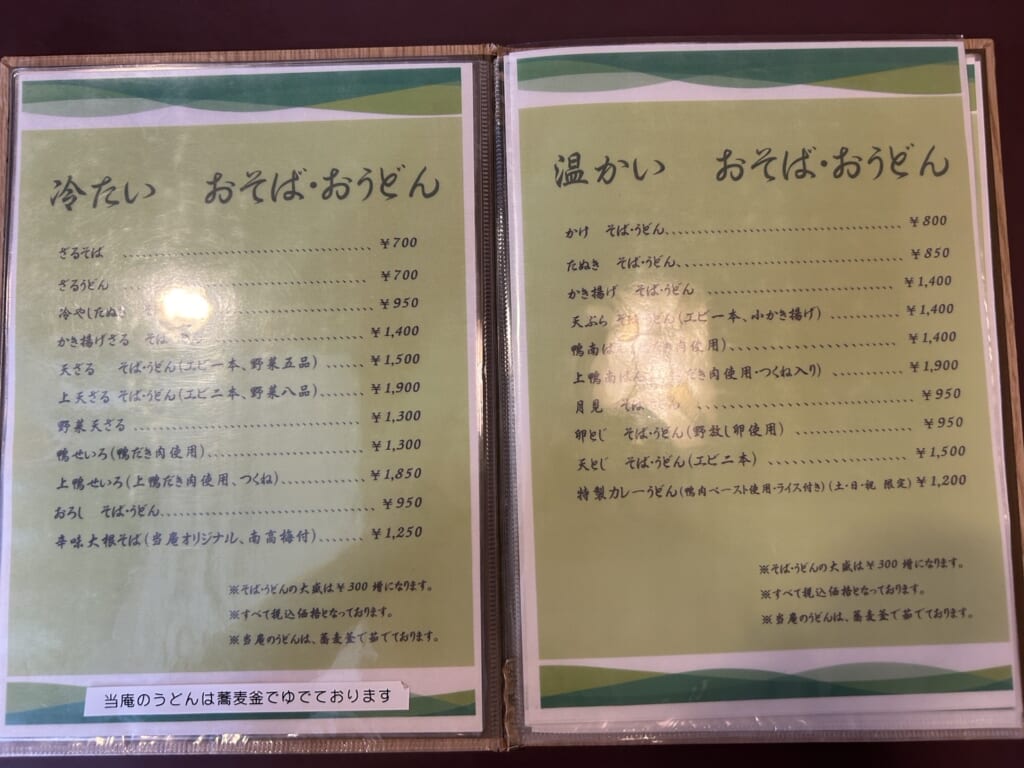 冷たい おそば・おうどん
ざるそば ¥700
ざるうどん ¥700
冷やしたぬき ¥950
かき揚げざる そば ¥1,400
天ざる そば・うどん(エビ一本、野菜五品) ¥1,500
上天ざる そば・うどん(エビ二本、野菜八品) ¥1,900
野菜天ざる ¥1,300
鴨せいろ(鴨だき肉使用) ¥1,300
上鴨せいろ(上鴨だき肉使用、つくね) ¥1,850
おろし そば・うどん ¥950
辛味大根そば(当庵オリジナル、南高梅付) ¥1,250
※そば・うどんの大盛は¥300 増になります。
※すべて税込価格となっております。
※当庵のうどんは、蕎麦釜で茹でております。
当庵のうどんは蕎麦釜でゆでております
温かい おそば・おうどん
かけ そば・うどん ¥800
たぬき そば・うどん ¥850
かき揚げ そば・うどん ¥1,400
天ぷら そば うどん(エビ一本、小かき揚げ) ¥1,400
鴨南ば だき肉使用) ¥1,400
上鴨南ばん だき肉使用・つくね入り) ¥1,900
月見 そば ¥950
卵とじ そば・うどん(野放し卵使用) ¥950
天とじ そば・うどん(エビ二本) ¥1,500
特製カレーうどん(鴨肉ペースト使用・ライス付き)(土・日・祝 限定) ¥1,200
※そば・うどんの大盛は¥300 増になります。
※すべて税込価格となっております。
※当庵のうどんは、蕎麦釜で茹でております。